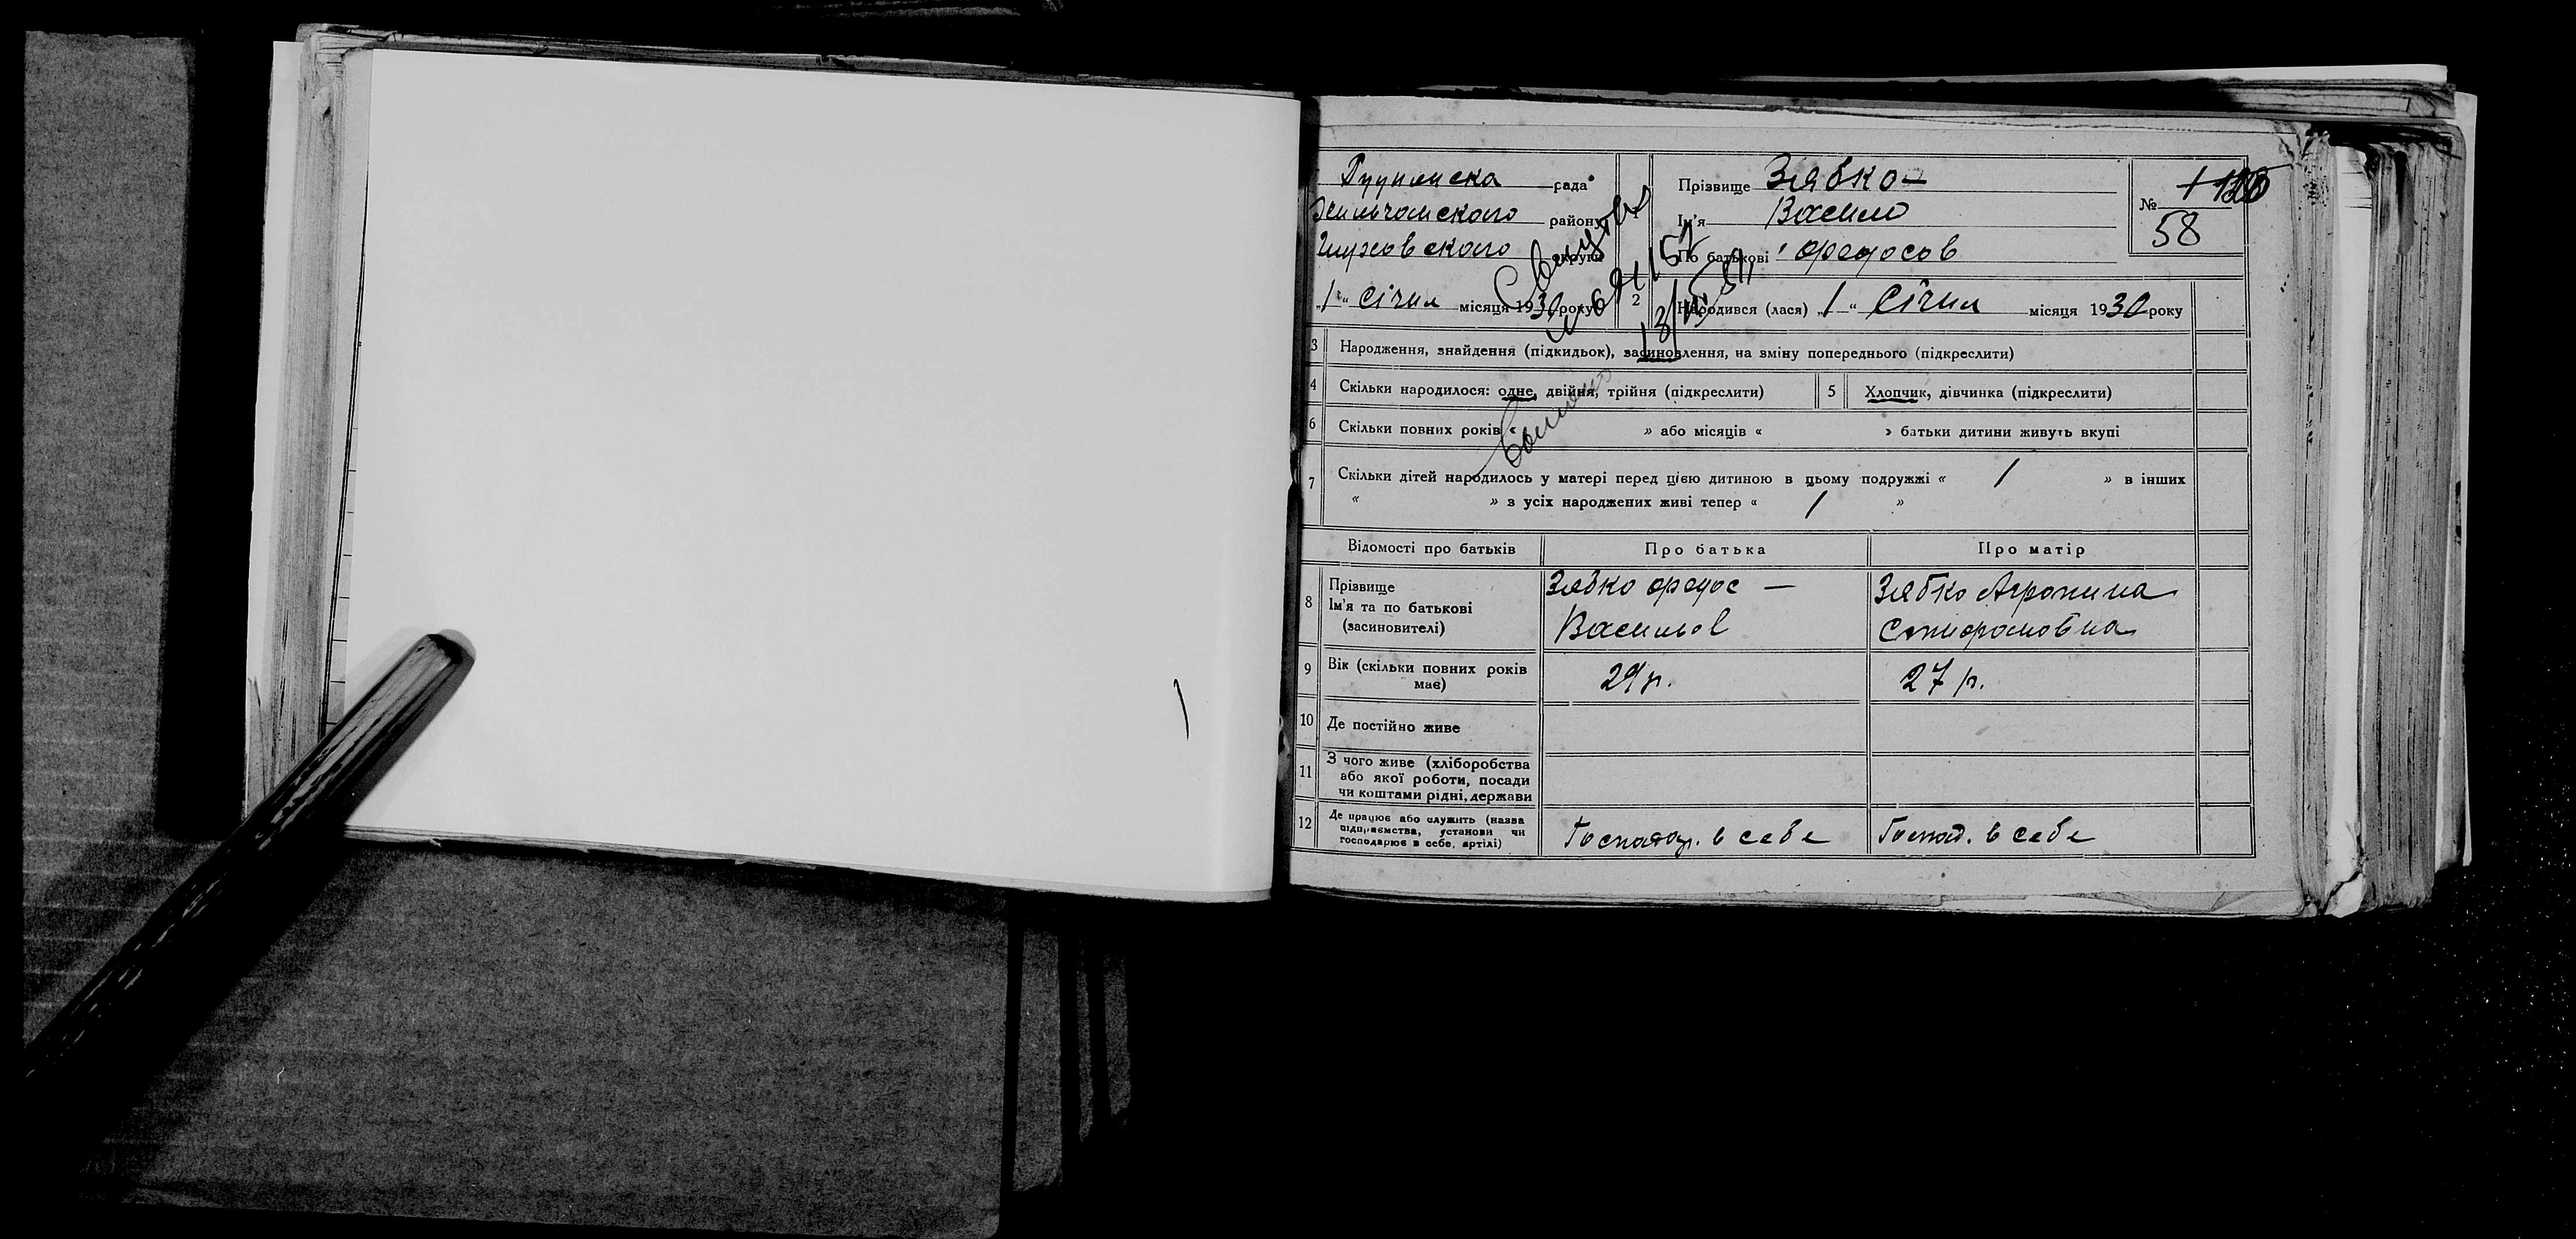 рада
району
Глухівського округи
„1“ Січня місяця 1930 року
Прізвище Зябко
Ім'я Василь
По батькові Федосов
№ 58
2 Народився (лася) „1“ Січня місяця 1930 року
3 Народження, знайдення (підкидьок), засиновлення, на зміну попереднього (підкреслити)
4 Скільки народилося: одне, двійня, трійня (підкреслити)
5 Хлопчик, дівчинка (підкреслити)
6 Скільки повних років « » або місяців « » батьки дитини живуть вкупі
7 Скільки дітей народилось у матері перед цією дитиною в цьому подружжі « 1 » в інших
« » з усіх народжених живі тепер « 1 »
Відомості про батьків
Про батька
Про матір
8 Прізвище
Ім'я та по батькові
(засиновителі)
Зябко Федос —
Васильов
Зябко
9 Вік (скільки повних років
має)
29 р.
27 р.
10 Де постійно живе
11 З чого живе (хліборобства
або якої роботи, посади
чи коштами рідні, держави
12 Де працює або служить (назва
підприємства, установи чи
господарює в себе, артілі)
Господар. в себе
Господ. в себе